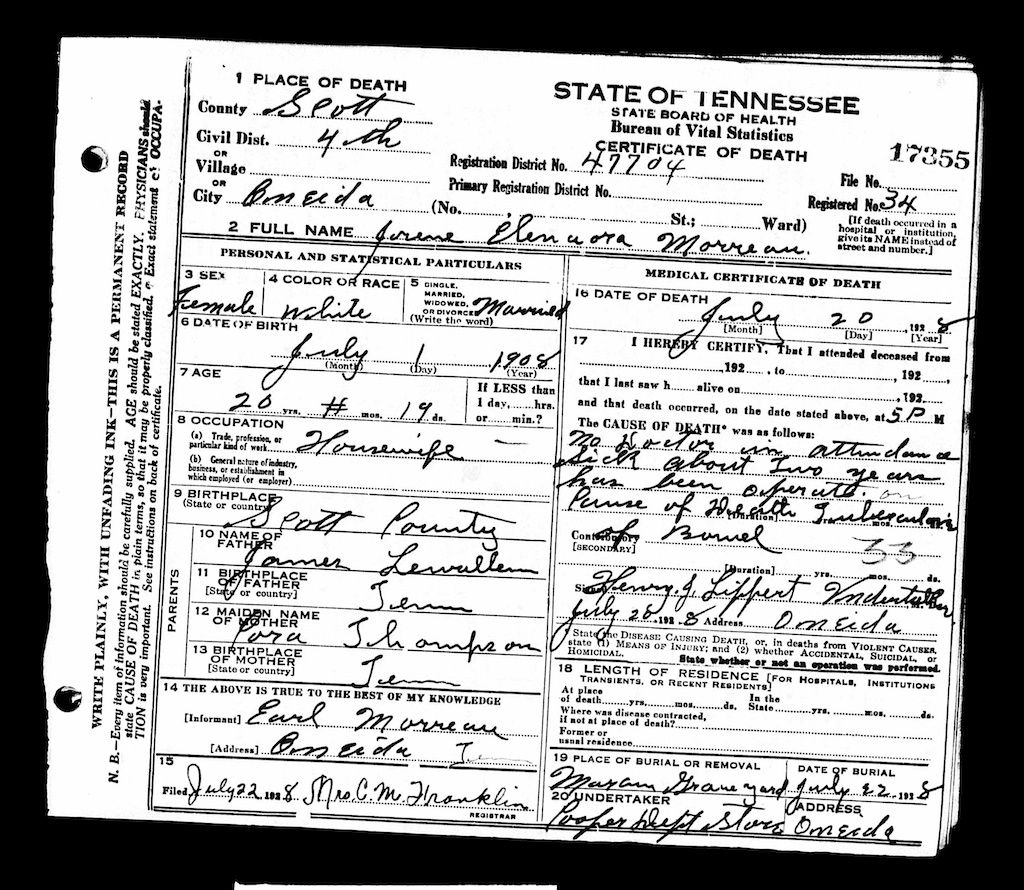 1 PLACE OF DEATH
County Scott
Civil Dist. 4th
OR
Village
OR
City Oneida (No. St.; Ward)
STATE OF TENNESSEE
STATE BOARD OF HEALTH
Bureau of Vital Statistics
CERTIFICATE OF DEATH
17355
Registration District No. 47704 File No.
Primary Registration District No. Registered No. 34
[If death occurred in a hospital or institution, give its NAME instead of street and number.]
2 FULL NAME Jorene Morreau
WRITE PLAINLY, WITH UNFADING INK—THIS IS A PERMANENT RECORD
N. B.—Every item of information should be carefully supplied. AGE should be stated EXACTLY. PHYSICIANS should
state CAUSE OF DEATH in plain terms, so that it may be properly classified. Exact statement of OCCUPA-
TION is very important. See instructions on back of certificate.
PERSONAL AND STATISTICAL PARTICULARS
3 SEX
Female
4 COLOR OR RACE
White
5 SINGLE, MARRIED, WIDOWED, OR DIVORCED (Write the word) Married
6 DATE OF BIRTH
July 1 1908
(Month) (Day) (Year)
7 AGE
20 yrs. # mos. 19 ds.
If LESS than
1 day, hrs.
or min.?
8 OCCUPATION
(a) Trade, profession, or
particular kind of work Housewife —
(b) General nature of industry,
business, or establishment in
which employed (or employer)
9 BIRTHPLACE
(State or country)
Scott County
PARENTS
10 NAME OF FATHER
James Lewallen
11 BIRTHPLACE OF FATHER
[State or country] Tenn
12 MAIDEN NAME OF MOTHER
Cora Thompson
13 BIRTHPLACE OF MOTHER
[State or country] Tenn
14 THE ABOVE IS TRUE TO THE BEST OF MY KNOWLEDGE
[Informant] Earl Morreau
[Address] Oneida
15
Filed July 22 1928 Mrs. C. M. Franklin
REGISTRAR
MEDICAL CERTIFICATE OF DEATH
16 DATE OF DEATH
July 20, 1928
[Month] [Day] [Year]
17 I HEREBY CERTIFY, That I attended deceased from
, 192 , to , 192 ,
that I last saw h alive on , 192
and that death occurred, on the date stated above, at 5 P M
The CAUSE OF DEATH* was as follows:
No Doctor in attendance
Sick about Two years
has been operate on
Cause of Death Tuberculosis
(Duration) mos.
Contributory of Bowel 33
[SECONDARY]
[Duration] yrs. mos. ds.
Signed Henry J. Lippert Undertaker
July 20 1928 Address Oneida
State the DISEASE CAUSING DEATH, or, in deaths from VIOLENT CAUSES,
state (1) MEANS OF INJURY; and (2) whether ACCIDENTAL, SUICIDAL, or
HOMICIDAL. State whether or not an operation was performed.
18 LENGTH OF RESIDENCE [FOR HOSPITALS, INSTITUTIONS
TRANSIENTS, OR RECENT RESIDENTS]
At place In the
of death yrs. mos. ds. State yrs. mos. ds.
Where was disease contracted,
if not at place of death?
Former or
usual residence
19 PLACE OF BURIAL OR REMOVAL
Graveyard
DATE OF BURIAL
July 22, 1928
20 UNDERTAKER
Cooper Dept Store
ADDRESS
Oneida